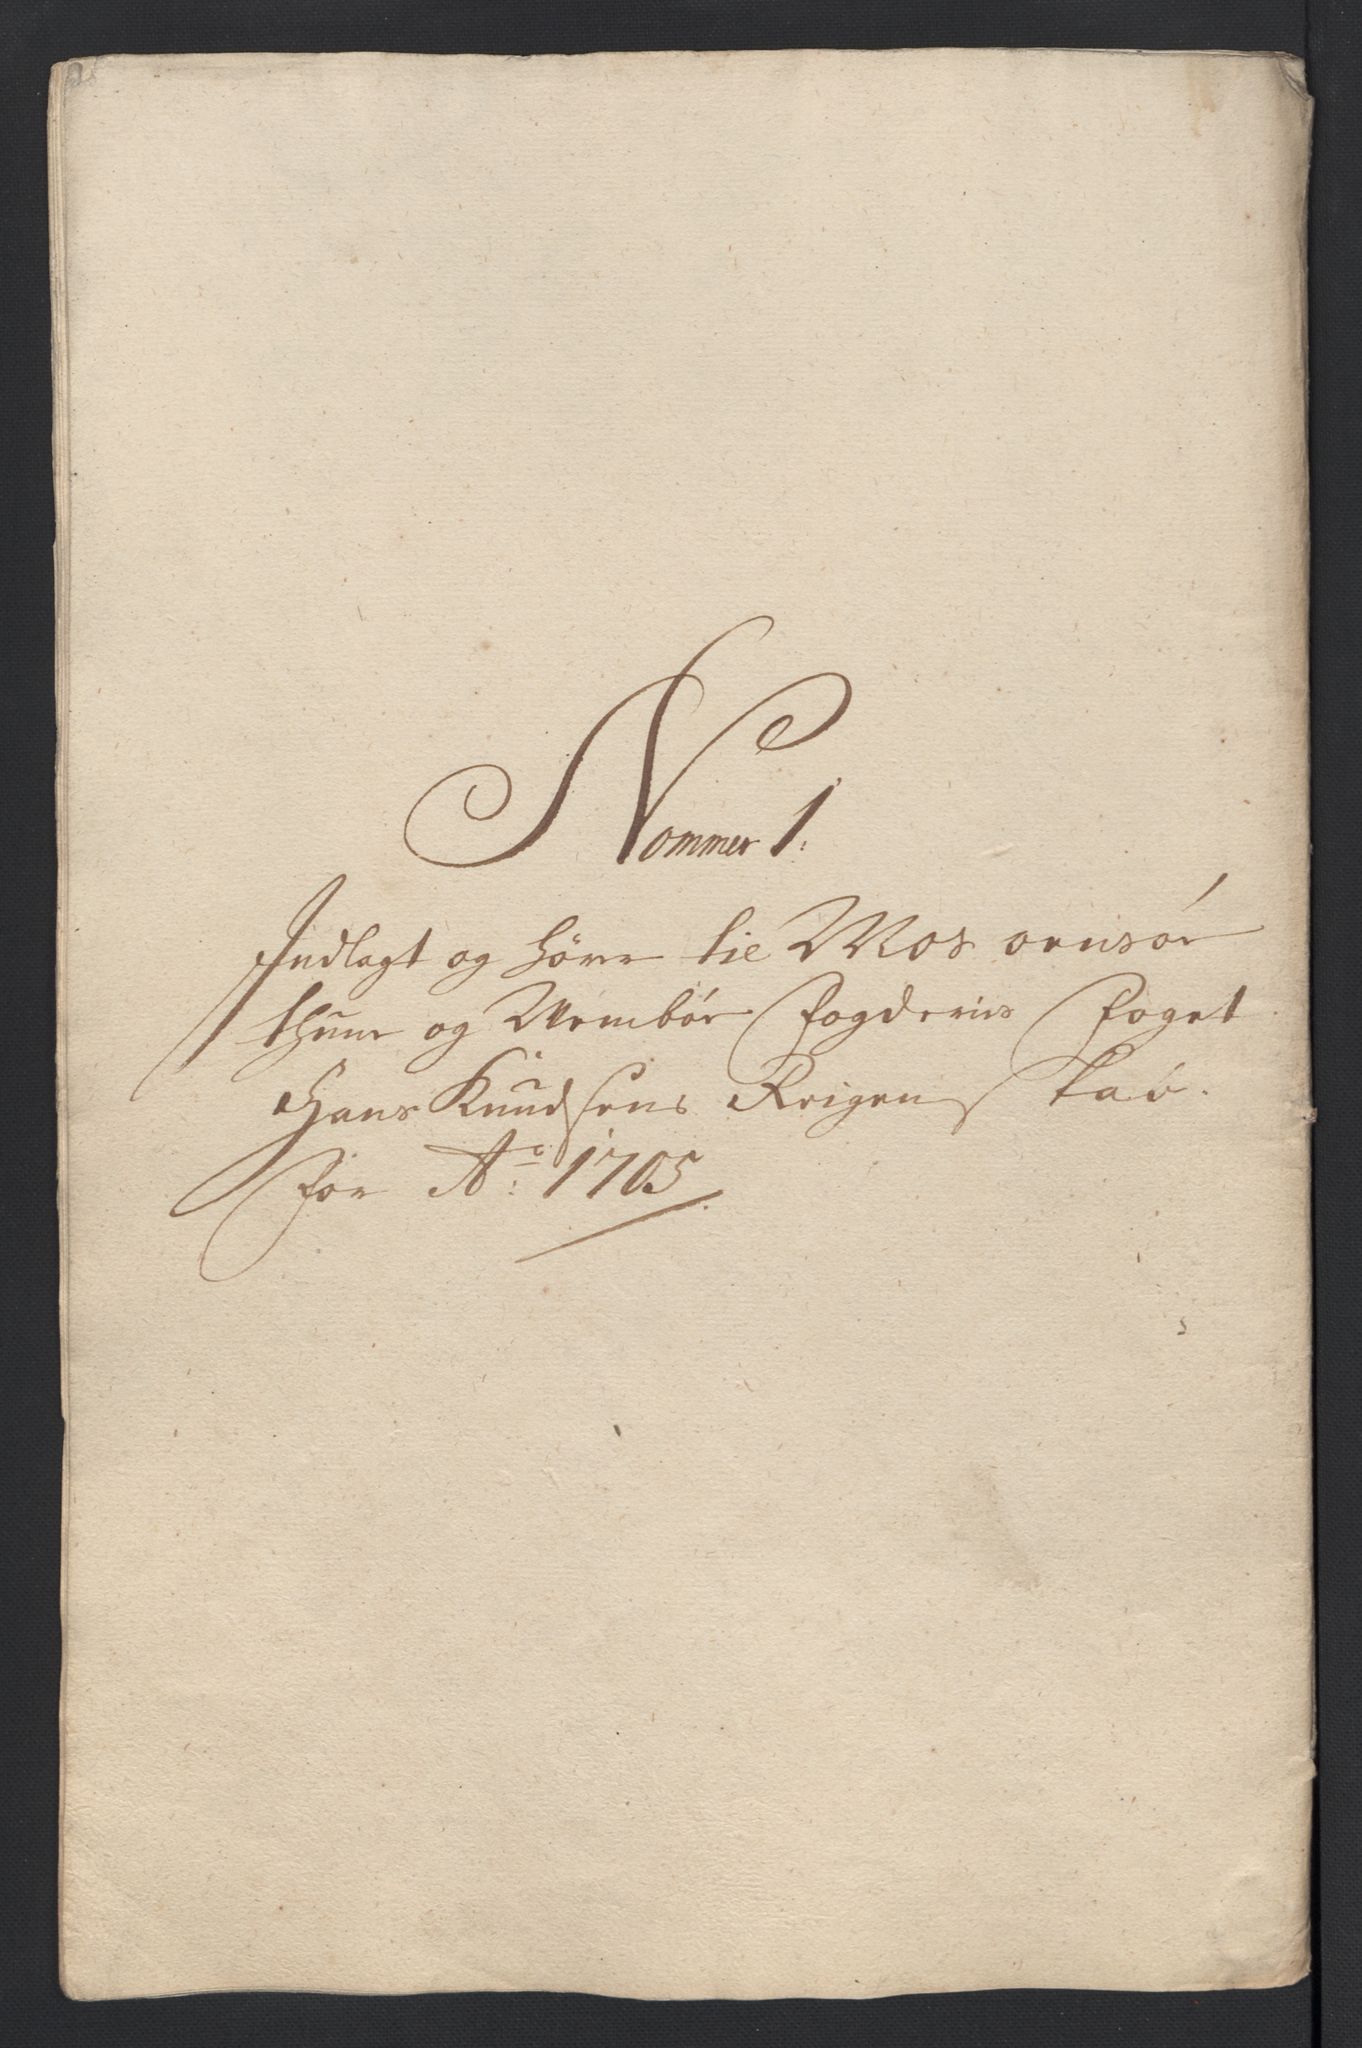 Nommer 1:
Indlagt og hører til Mos onsøe
thune og Wembøe Fogderies Foget
Hans Knudsens Reigenskab.
for Ao: 1705